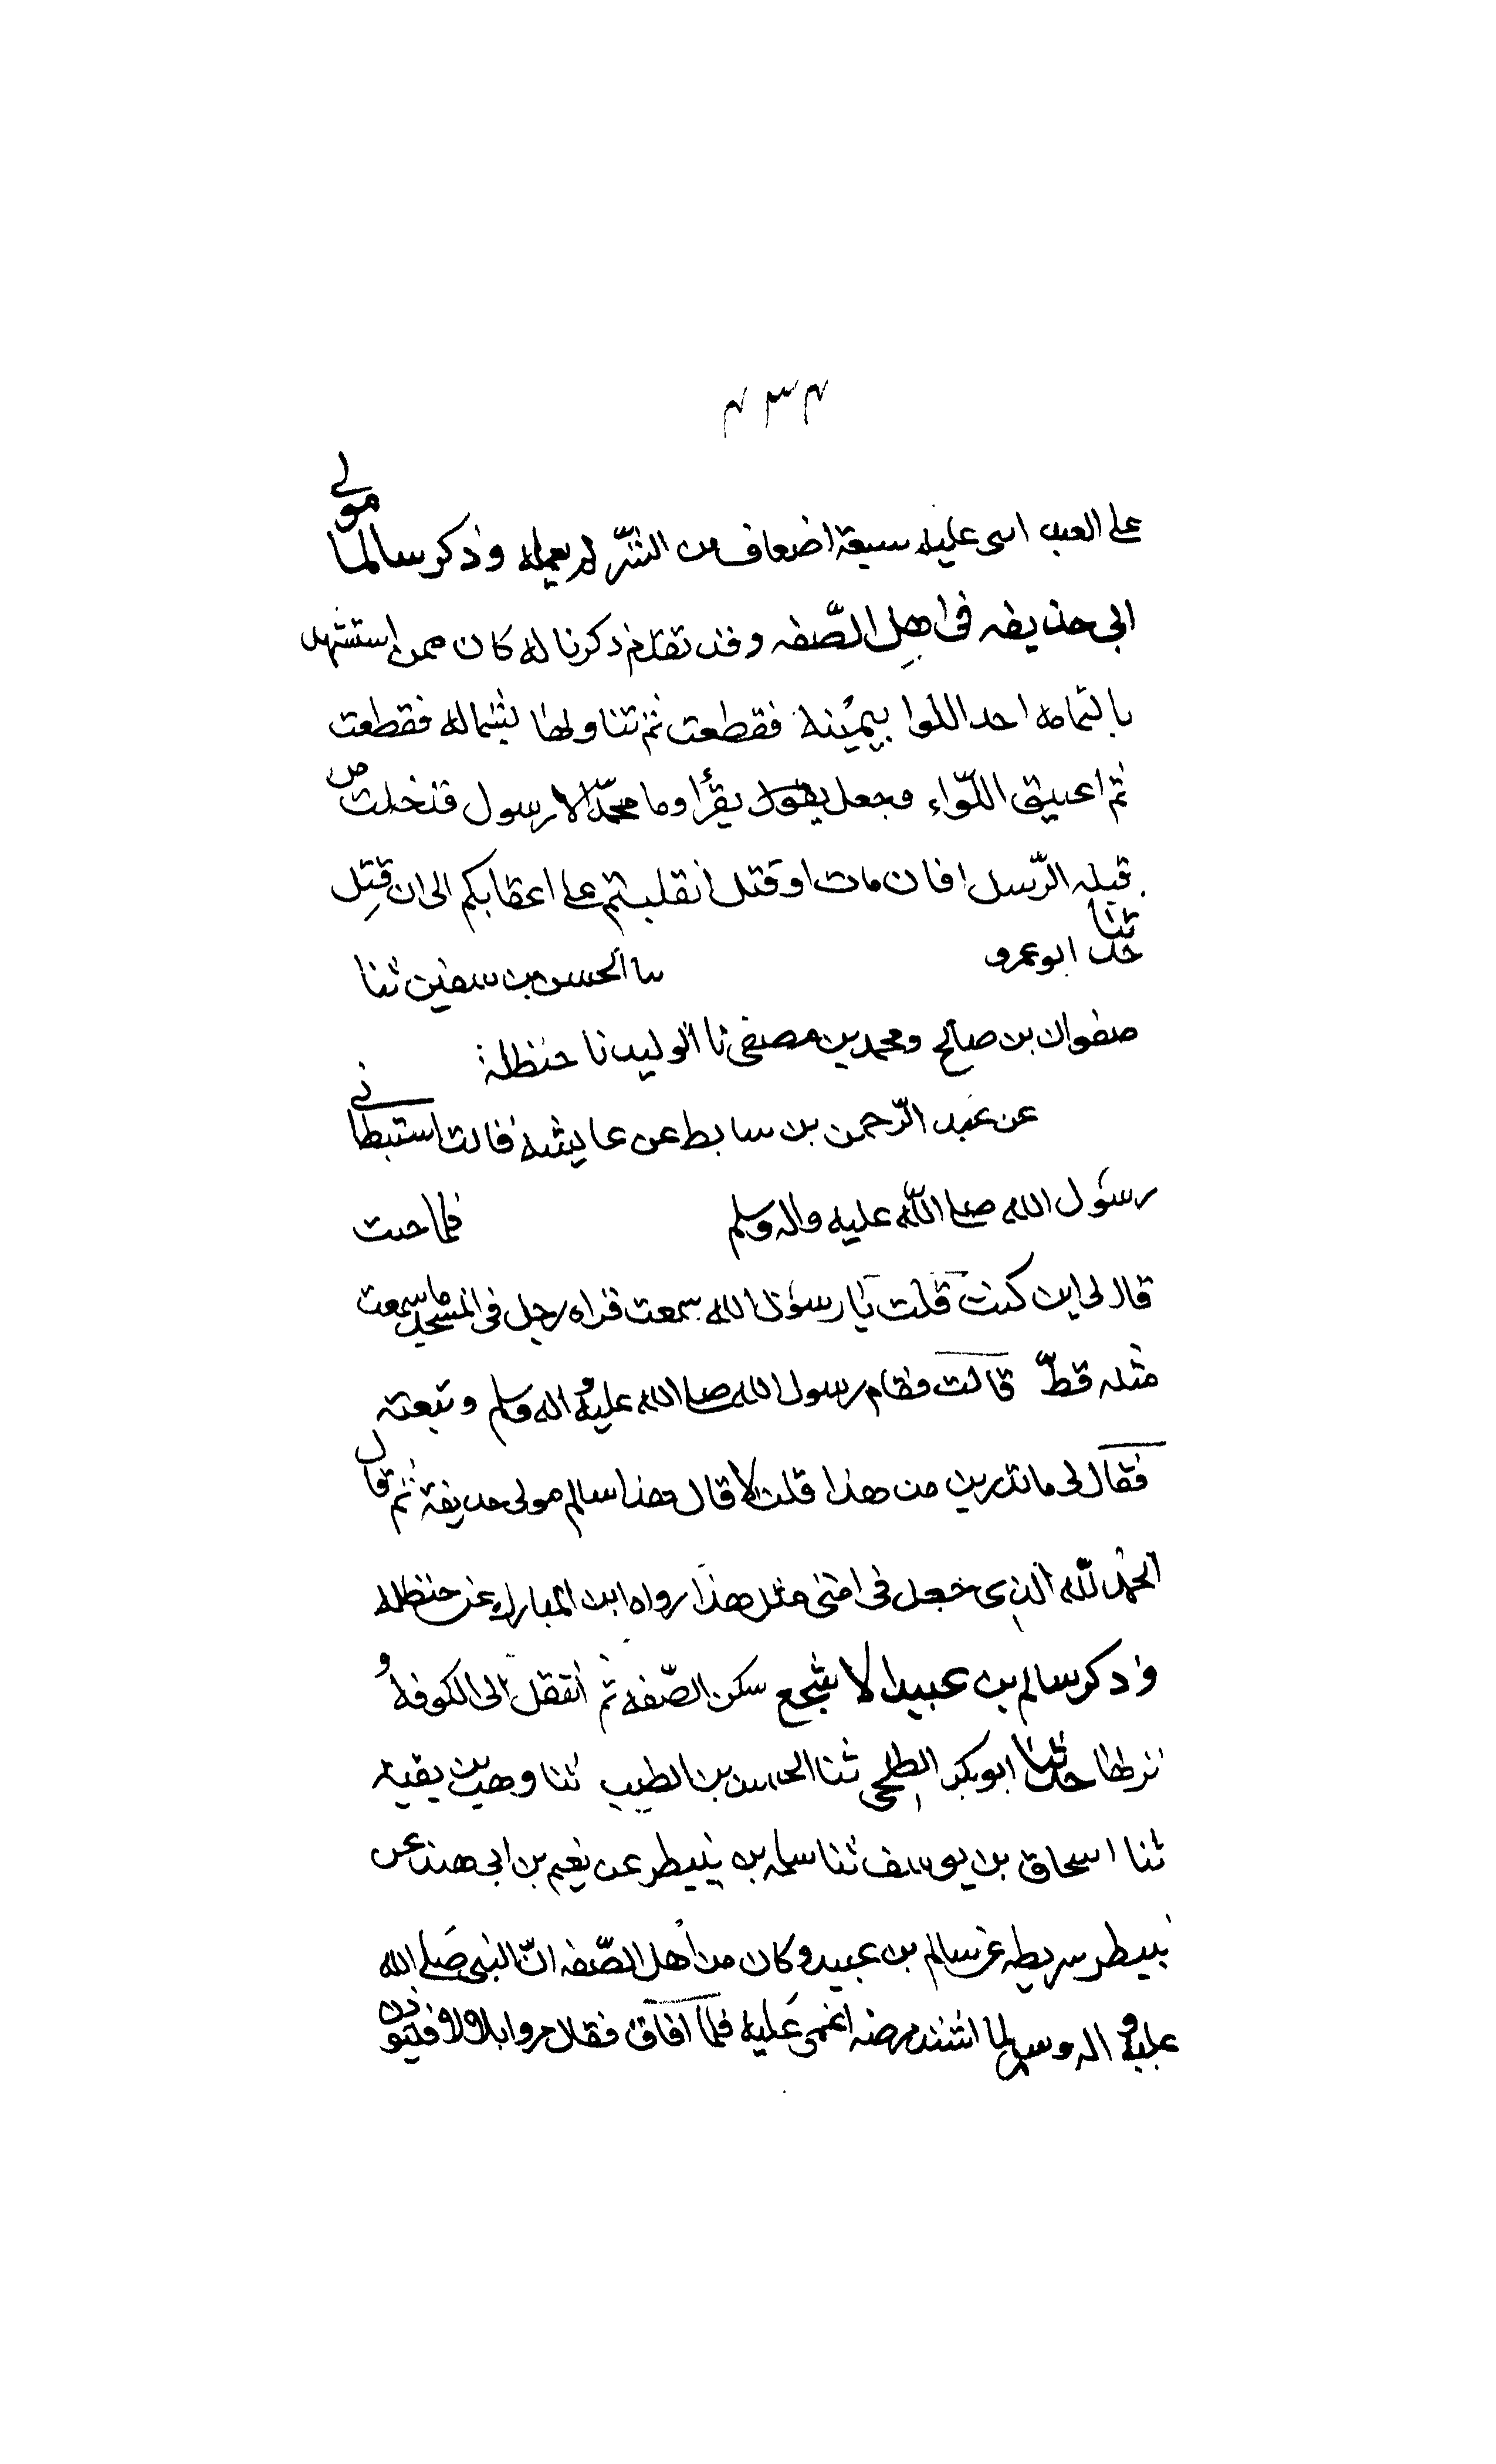 ٤٣٤
على العبد اسى عليه سبعة اضعاف من الشرّ لم يعمله وذكر سالما مولى
ابى حذيفه فى اهل الصّفه وقد تقدّم ذكرنا له كان ممن استشهد
باليمامه اخذ اللوا بيمينه فقطعت ثم تناولها بشماله فقطعت
ثم اعتنق اللّواء وجعل يقول يقرأ وما محمّد الا رسول قد خلت من
قبله الرّسل افان مات او قتل انقلبتم على اعقابكم الى ان قتل
حدثنا ابو عمرو سا الحسن بن سفين ثنا
صفوان بن صالح ومحمد بن مصفى نا الوليد نا حنظلة
عن عبد الرّحمن بن سابط عن عايشه قالت استبطانى
رسول الله صلى الله عليه واله وسلم فلما جيت
قال لى اين كنت قلت يا رسول الله سمعت قراه رجل فى المسجد ما سمعت
مثله قطّ قالت فقام رسول الله صلى الله عليه واله وسلم وتبعته
فقال لى ما تدرين من هذا قلت لا قال هذا سالم مولى حذيفة ثم قال
الحمد لله الذى جعل فى امتى مثل هذا رواه ابن المبارك عن حنظله
وذكر سالم بن عبيد الاشجع سكن الصّفه ثم انتقل الى الكوفه و
نزلها حدثنا ابو بكر الطلحى ثنا الحسن بن الطيب ثنا وهب بن بقيه
ثنا اسحاق بن يوسف ثنا سلمه بن نبيط عن نعيم بن ابى هند عن
نبيط بن شريط عن سالم بن عبيد وكان من اهل الصّفه انّ النبى صلى الله
عليه واله وسلم لما اشتد مرضه اغمى عليه فلما افاق فقال مروا بلالا فليوذن